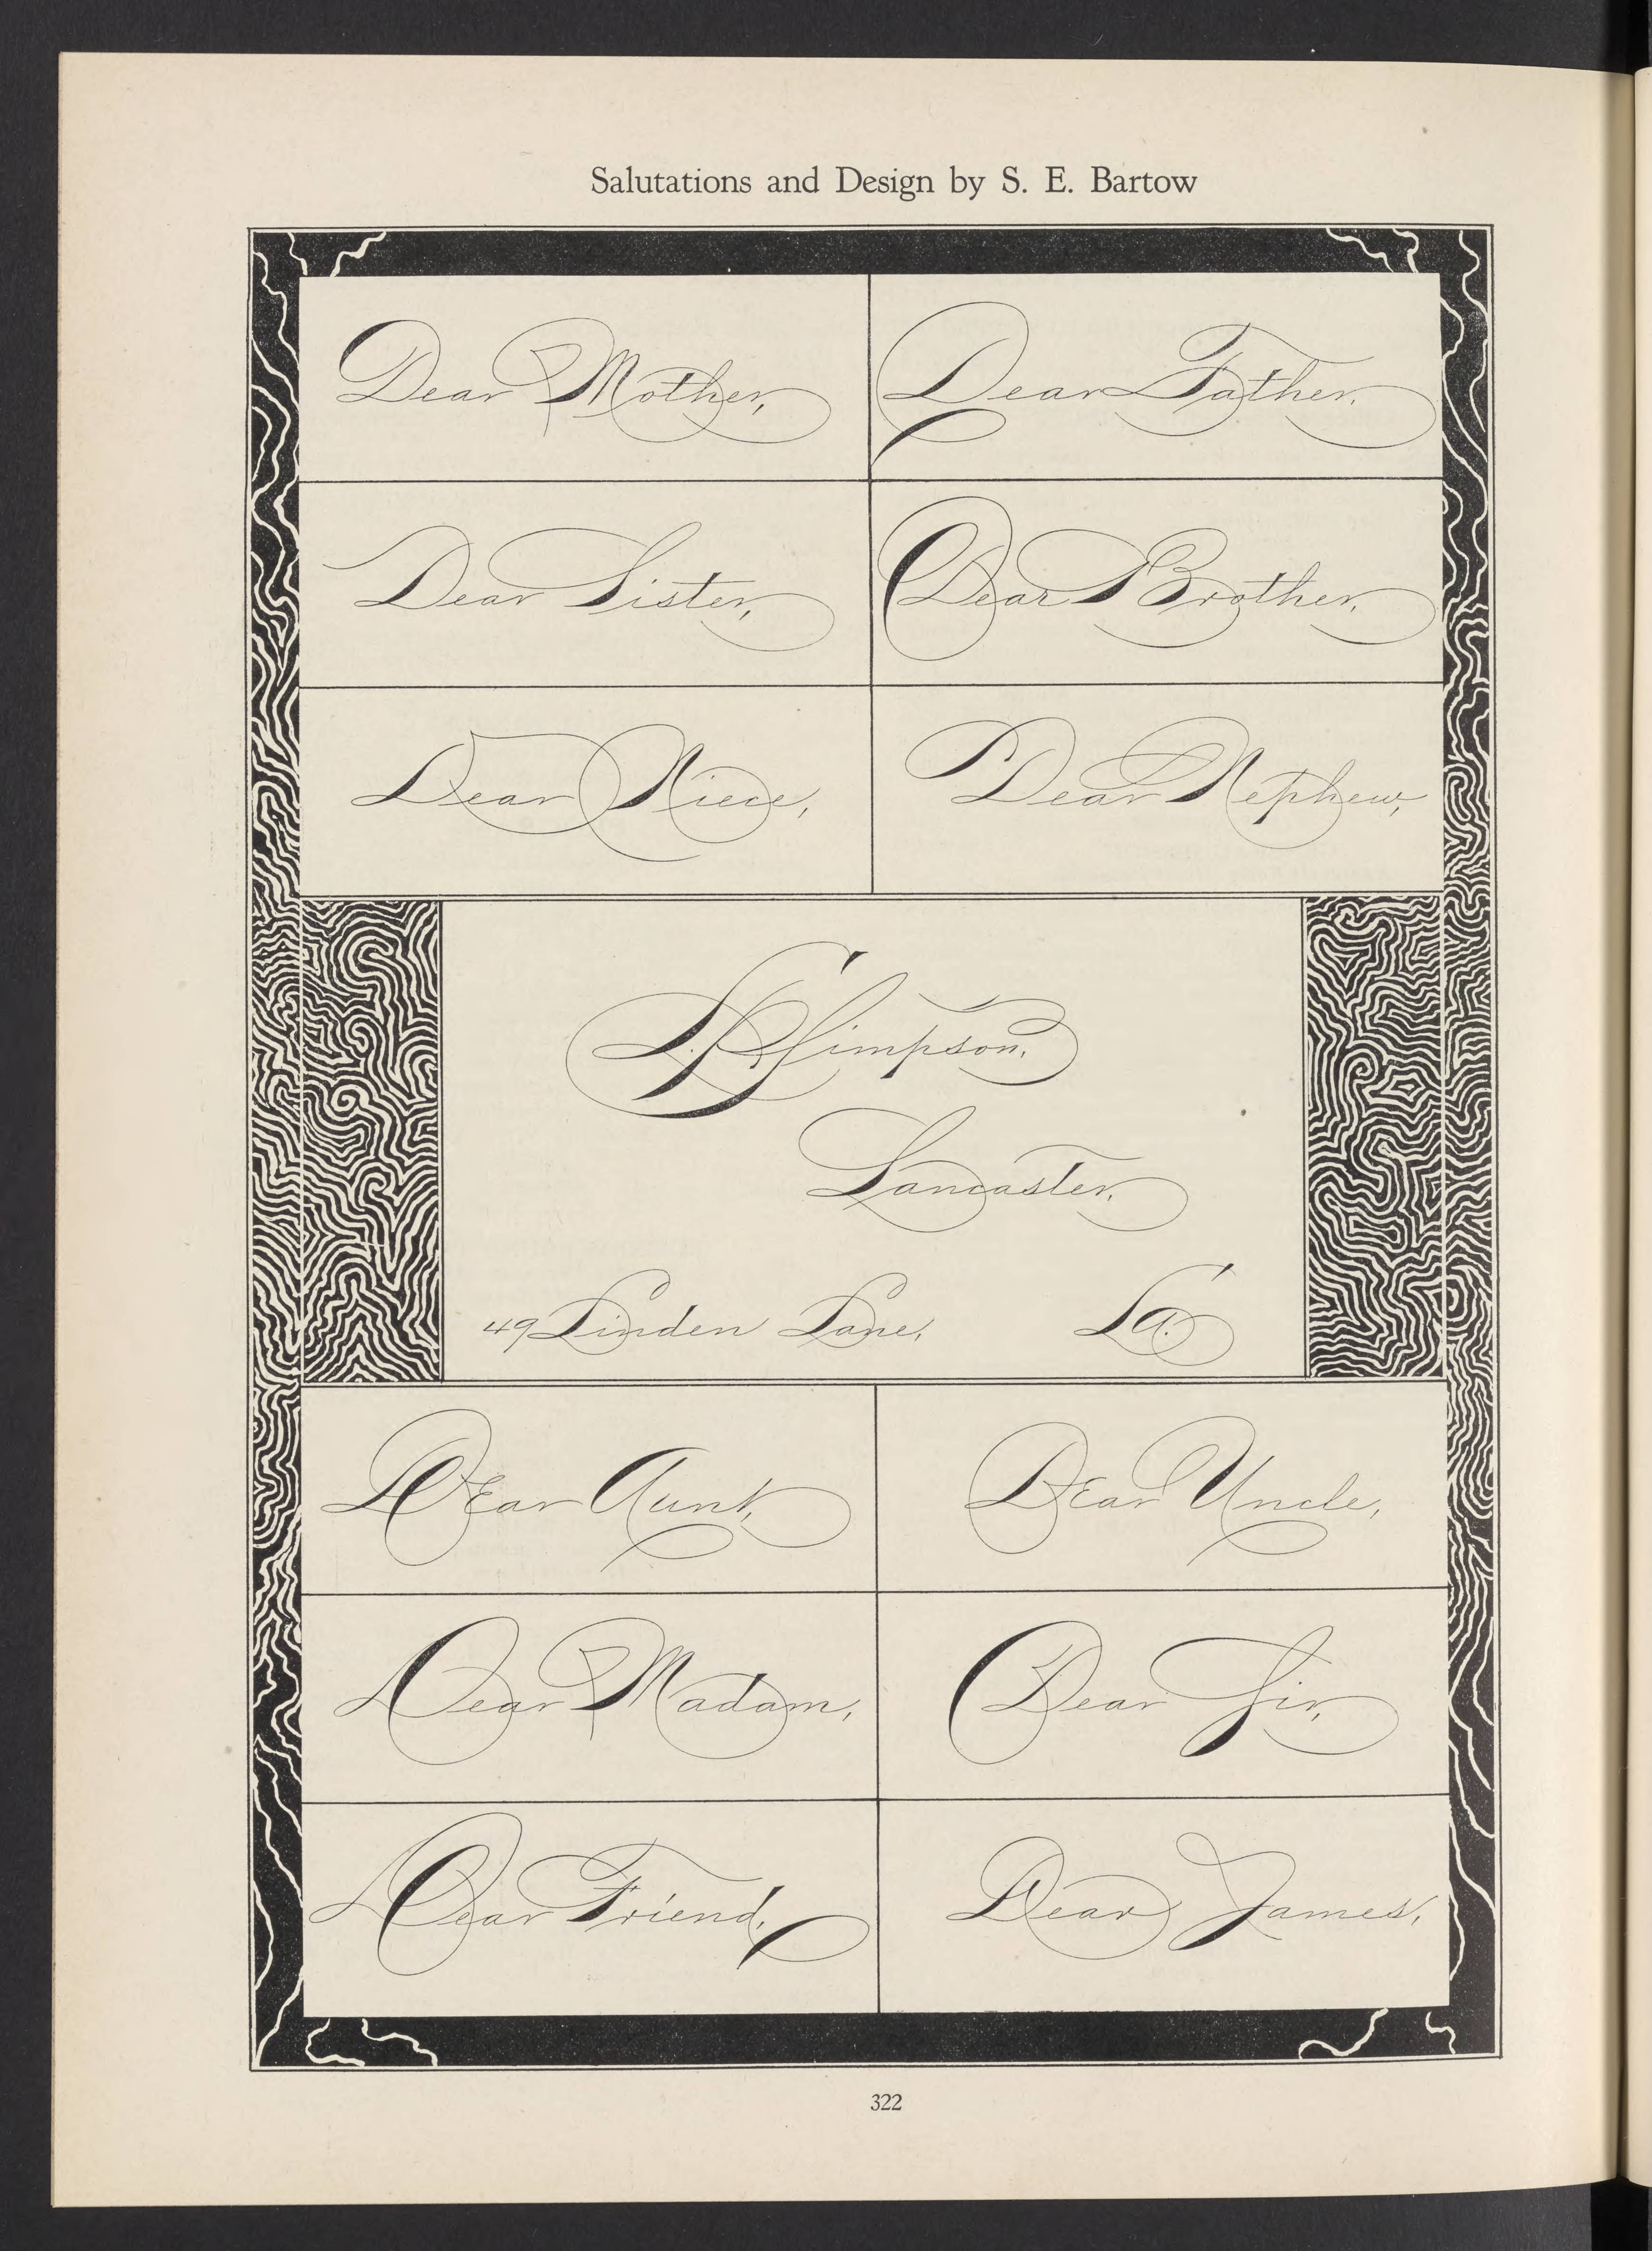 Salutations and Design by S. E. Bartow
Dear Mother,
Dear Father,
Dear Sister,
Dear Brother,
Dear Niece,
Dear Nephew,
Simpson,
Lancaster,
49 Linden Lane,
La.
Dear Aunt,
Dear Uncle,
Dear Madam,
Dear Sir,
Dear Friend,
Dear James,
322